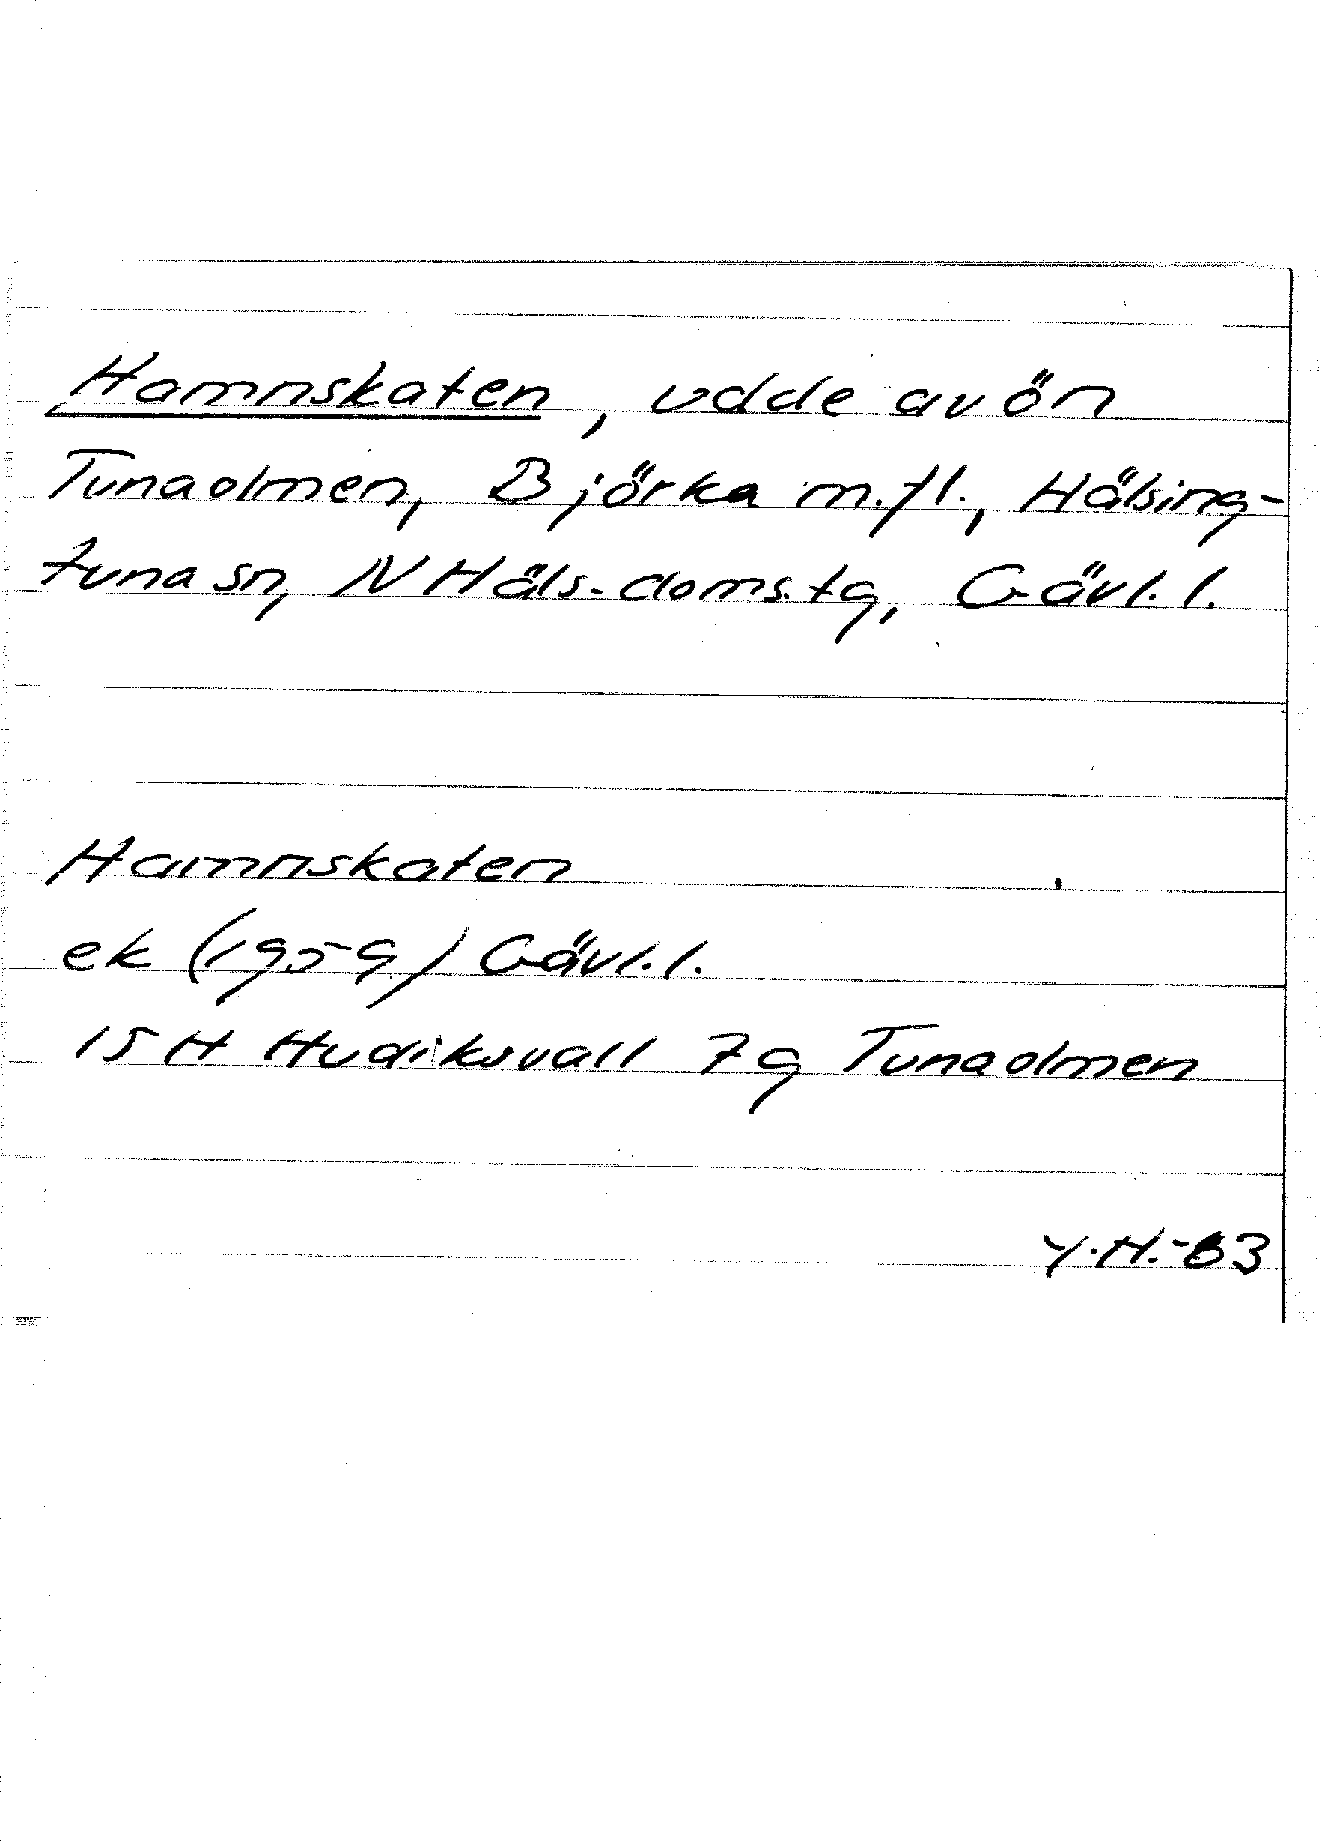 Hamnskaten, udde av ön
Tunaolmen, Björka m.fl., Hälsing-
tuna sn, N Häls. doms.tg, Gävl. l.
Hamnskaten
ek (1959) Gävl. l.
15 H Hudiksvall 7g Tunaolmen
Y.H.-83